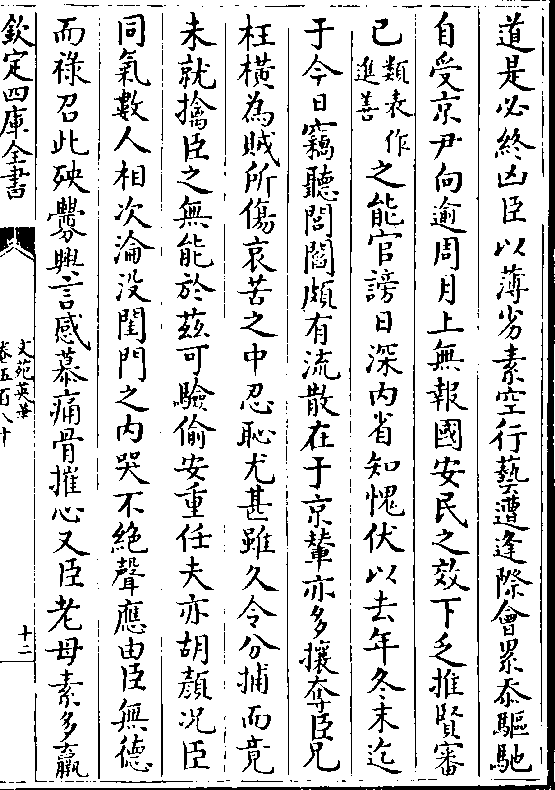 道是必終凶臣以薄劣素空行藝遭逢際會累忝驅馳
自受京尹向逾周月上無報國安民之效下乏推賢審
已類表作進善之能官謗日深内省知愧伏以去年冬末迄
于今日竊聽閭閻頗有流散在于京輦亦多攘奪臣兄
枉橫為賊所傷哀苦之中忍恥尤甚雖久令分捕而竟
未就擒臣之無能於兹可驗偷安重任夫亦胡顔况臣
同氣數人相次淪没閨門之内哭不絶聲應由臣無德
而祿召此殃釁興言感慕痛骨摧心又臣老母素多羸
欽定四庫全書
文苑英華
卷五百八十
十二